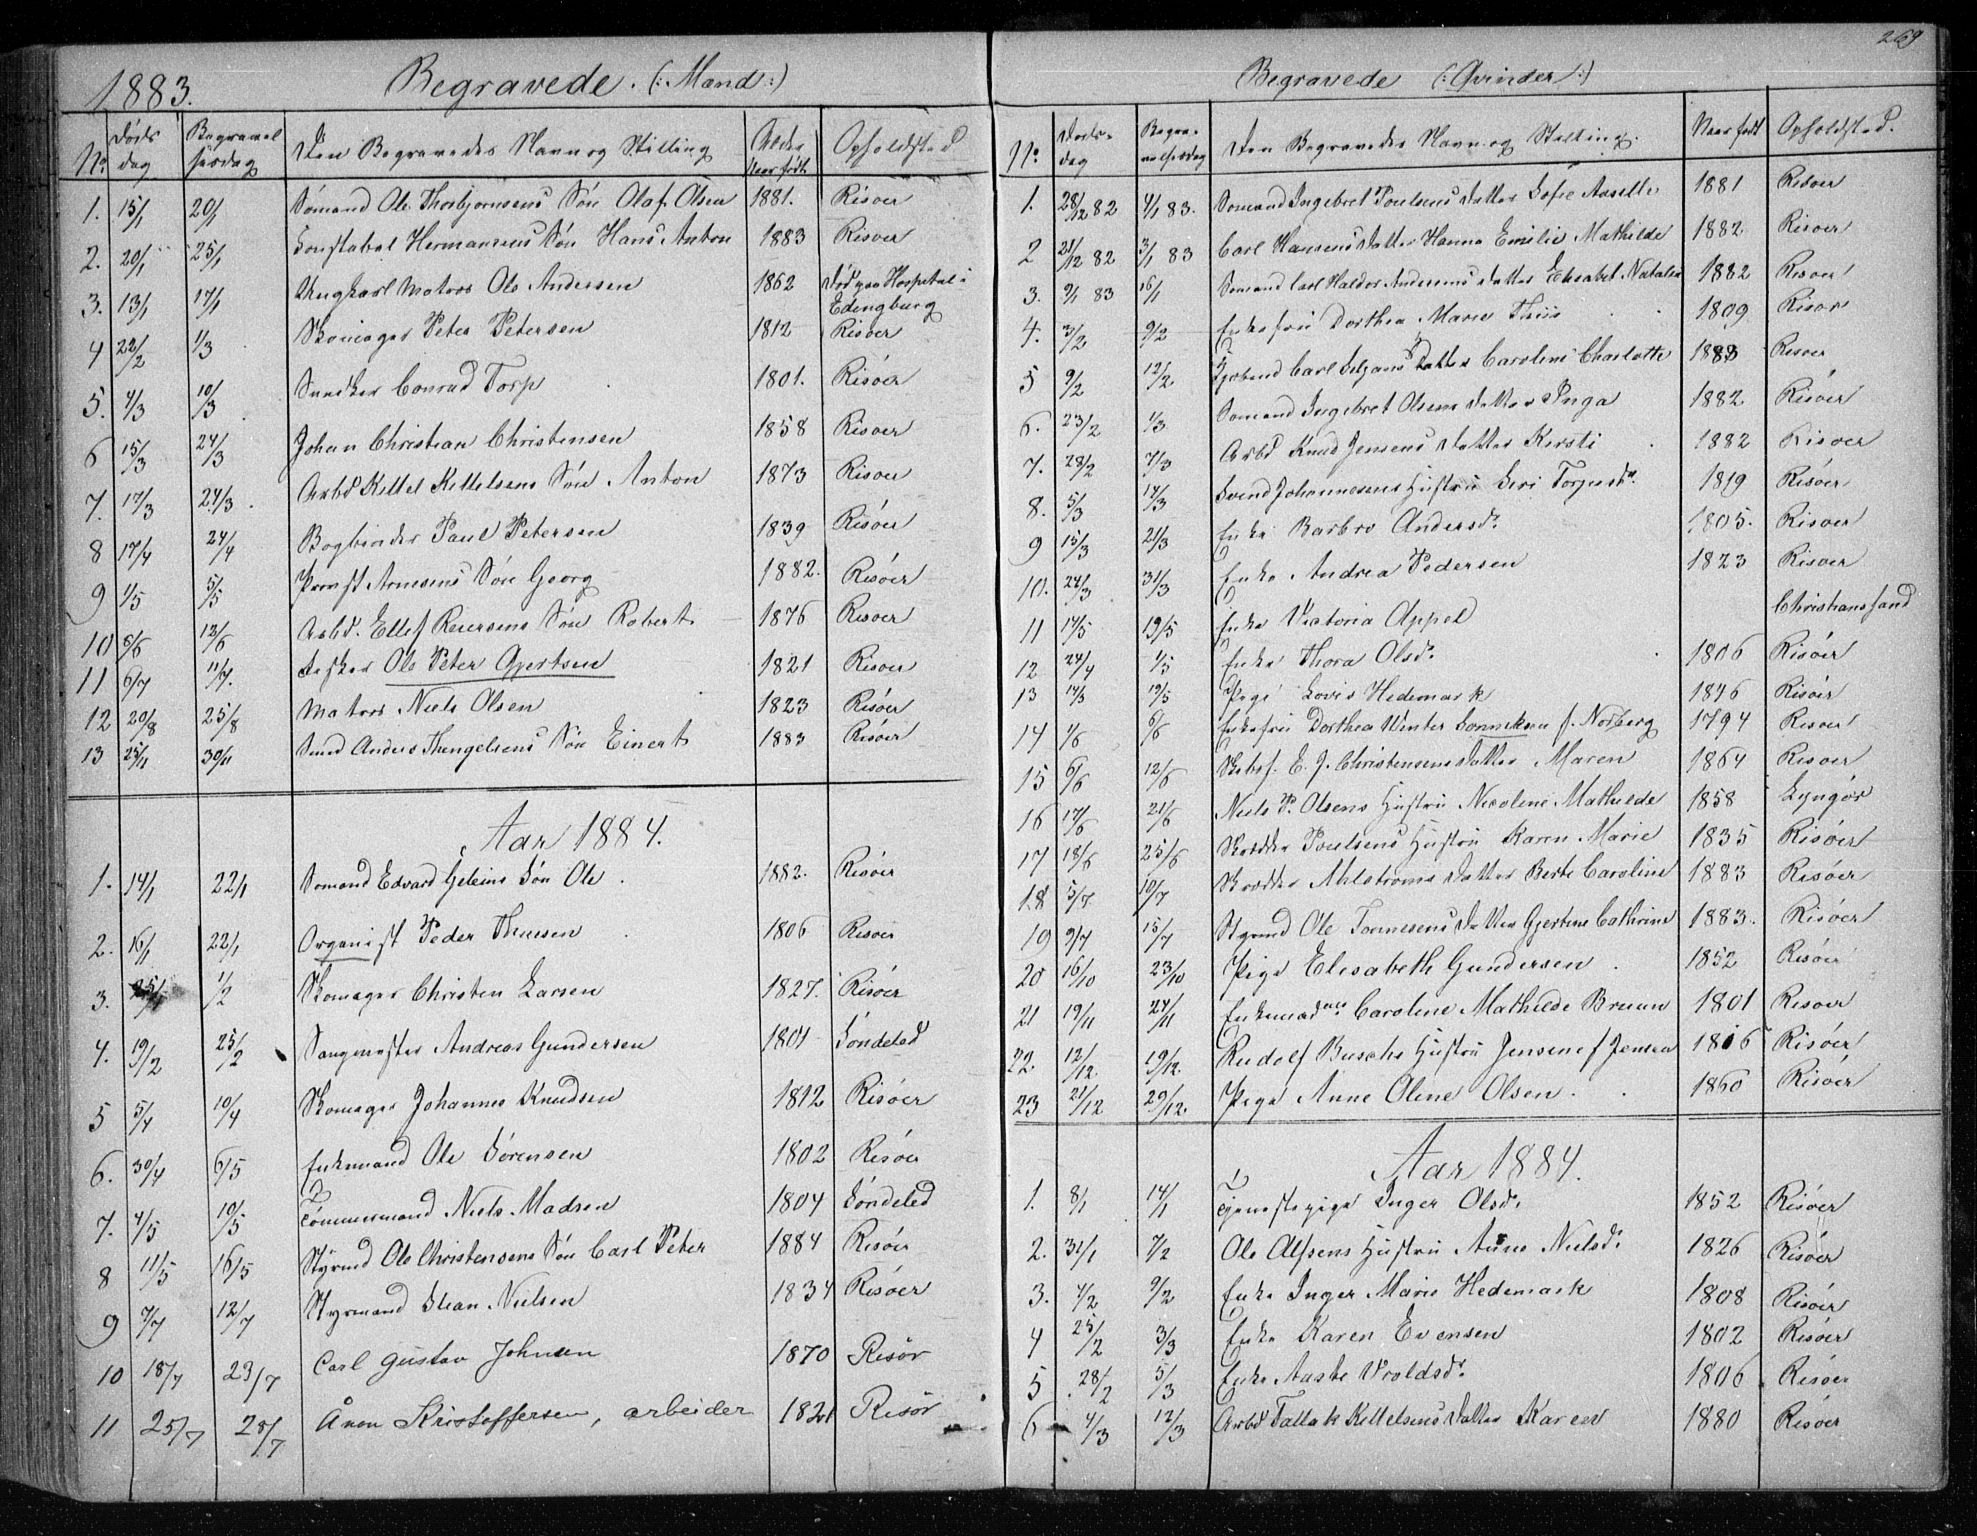 1883. Begravede. (: Mænd :)
No Døds dag Begravelsesdag Den Begravedes Navn og Stilling Alder Naar født Opholdsted
1. 15/1 20/1 Sømand Ole Thorbjørnsens Søn Olaf Olsen 1881. Risøer
2. 20/1 25/1 Constabel Hermansens Søn Hans Anton 1883 Risøer
3. 13/1 17/1 Ungkarl Matros Ole Andersen 1862 Død paa Hospital i
Edingburg
4 22/2 1/3 Skomager Peter Petersen 1812 Risøer
5. 4/3 10/3 Snedker Conrad Torp 1801. Risøer
6 15/3 24/3 Johan Christian Christensen 1858 Risøer
7. 17/3 24/3. Arbd Kittel Kittelsens Søn Anton 1873 Risøer
8 17/4 24/4 Bogbinder Paul Petersen 1839 Risøer
9 1/5 5/5 Provst Arnesens Søn Georg 1882. Risøer
10 6/6 13/6 Arbd. Ellef Reiersens Søn Robert 1876 Risøer
11 6/7 11/7. Ole Peter Gjertsen 1821 Risøer
12 20/8 25/8 Matros Niels Olsen 1823 Risøer
13 25/11 30/11 Smed Anders Thengelsens Søn Einert 1883 Risøer
Aar 1884.
1. 14/1 22/1 Sømand Edvard Geleins Søn Ole 1882. Risøer
2. 16/1 22/1 Organist Peder Thuesen 1806 Risøer
3. 25/1 1/2 Skomager Christen Larsen 1827. Risøer
4. 19/2 25/2 Sangmester Andreas Gundersen 1801 Søndeled
5 5/4 10/4 Skomager Johannes Knudsen 1812 Risøer
6. 30/4 6/5 Enkemand Ole Sørensen 1802 Risøer
7. 4/5 10/5 Tømmermand Niels Madsen 1804 Søndeled
8 11/5 16/5 Styrmd Ole Christensens Søn Carl Peter 1884 Risøer
9 7/7 12/7 Styrmand Stean Nielsen 1834 Risøer
10 18/7 23/7 Carl Gustav Johnsen 1870 Risør
11 25/7 28/7 Ånon Kristoffersen, arbeider 1821 Risør
269
Begravede (: Qvinder :)
No. Døds-dag Begravelsesdag Den Begravedes Navn og Stilling. Naar født Opholdsted.
1. 28/12 82 4/1 83. Sømand Ingebret Poulsens Datter Sofie Aasille 1881 Risøer
2 21/12 82 3/1 83 Carl Hansens Datter Hanna Emilie Mathilde 1882 Risøer
3. 9/1 83 16/1 Sømand Carl Haldor Andersens Datter Elisabet Natalia 1882 Risøer
4. 3/2 9/2 Enkefru Dorthea Marie Thiis 1809 Risør
5 9/2 12/2 Carl Datter Caroline Charlotte 1883 Risøer
6. 23/2 1/3 Sømand Ingebret Olsens Datter Inga 1882 Risøer
7. 28/2 7/3 Arbd Knud Jensens Datter Kersti 1882 Risøer
8. 5/3 14/3 Svend Johannesens Hustru Siri Torjusdr. 1819 Risøer
9 15/3 21/3 Enke Barbro Andersdr. 1805. Risøer
10. 24/3 31/3 Enke Andrea Pedersen 1823 Risøer
11 14/5 19/5 Enke Victoria Appel Christianssand
12 24/4 1/5 Enke Thora Olsdr. 1806 Risøer
13 14/5 19/5 Pige Lovis Hedemark 1876 Risøer
14 1/6 6/6 Enkefru Dorthea Winter Sonniksen f. Norberg 1794 Risøer
15 6/6 12/6 Skibsf. E. J. Christensens Datter Maren 1864 Risøer
16 17/6 21/6 Niels P. Olsens Hustru Nicoline Mathilde 1858 Lyngør
17 18/6 25/6 Skrædder Poulsens Hustru Karen Marie 1835 Risøer
18 5/7 10/7 Skrædder Ahlstrøms Datter Berte Caroline 1883 Risøer
19 9/7 15/7 Styrmd Ole Tønnesens Datter Gjertine Cathrine 1883. Risøer
20 16/10 23/10 Pige Elisabeth Gundersen 1852 Risøer
21 19/11 24/11 Enkemadme Caroline Mathilde Bruun 1801 Risøer
22. 12/12 19/12. Rudolf Buschs Hustru Jensine f Jensen 1816 Risøer
23 21/12 29/12. Pige Anne Oline Olsen. 1860 Risøer
Aar 1884.
1. 8/1 14/1 Tjenestepige Inger Olsdr. 1852 Risøer
2. 31/1 7/2 Ole Alfsens Hustru Anne Nielsdr. 1826 Risøer
3. 4/2 9/2 Enke Inger Marie Hedemark 1808 Risøer
4 25/2 3/3 Enke Karen Evensen 1802 Risøer
5 28/2 5/3 Enke Aaste Vroldsdr. 1806 Risøer
6 4/3 12/3 Arbd Tallak Kittelsens Datter Karen 1880 Risøer